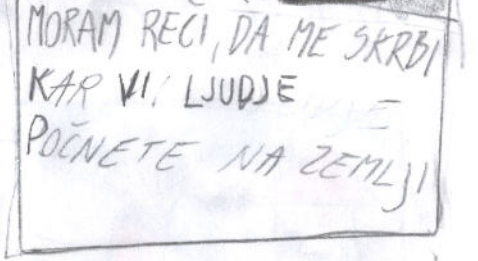 MORAM RECI, DA ME SKRBI
KAR VI LJUDJE
POČNETE NA ZEMLJI